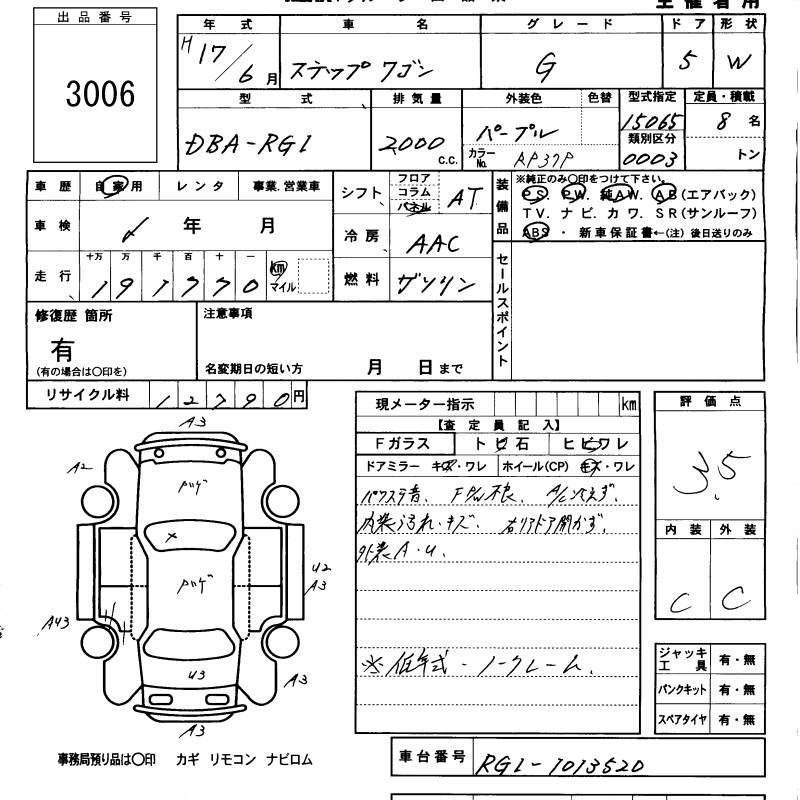 主催者用
出品番号
3006
年式 車名 グレード ドア 形状
H17/6月 ステップワゴン G 5 W
型式 排気量 外装色 色替 型式指定 定員・積載
DBA-RG1 2000 c.c. パープル 15065 8名
類別区分
カラーNo. RP37P 0003 トン
車歴 自家用 レンタ 事業.営業車
車検 年 月
走行 十万 万 千 百 十 一
191770 km マイル
シフト フロア コラム パネル AT
冷房 AAC
燃料 ガソリン
装備品
※純正のみ〇印をつけて下さい。
PS. PW. 純AW. AB(エアバック)
TV. ナビ. カワ. SR(サンルーフ)
ABS ・ 新車保証書←(注) 後日送りのみ
セールスポイント
修復歴 箇所
有
(有の場合は〇印を)
注意事項
名変期日の短い方 月 日まで
リサイクル料 12790円
現メーター指示 km
【査定員記入】
Fガラス トビ石 ヒビワレ
ドアミラー キズ・ワレ ホイール(CP) キズ・ワレ
パワステ音、 不良、 A/C
内装汚れ・キズ、 右リアドア開かず、
外装A・U、
※低年式・ノークレーム、
評価点
3.5
内装 外装
C C
A3
A2
ハゲ
×
ハゲ
U2
A3
A43
U3
A3
A3
ジャッキ 工具 有・無
パンクキット 有・無
スペアタイヤ 有・無
事務局預り品は〇印 カギ リモコン ナビロム
車台番号 RG1-1013520